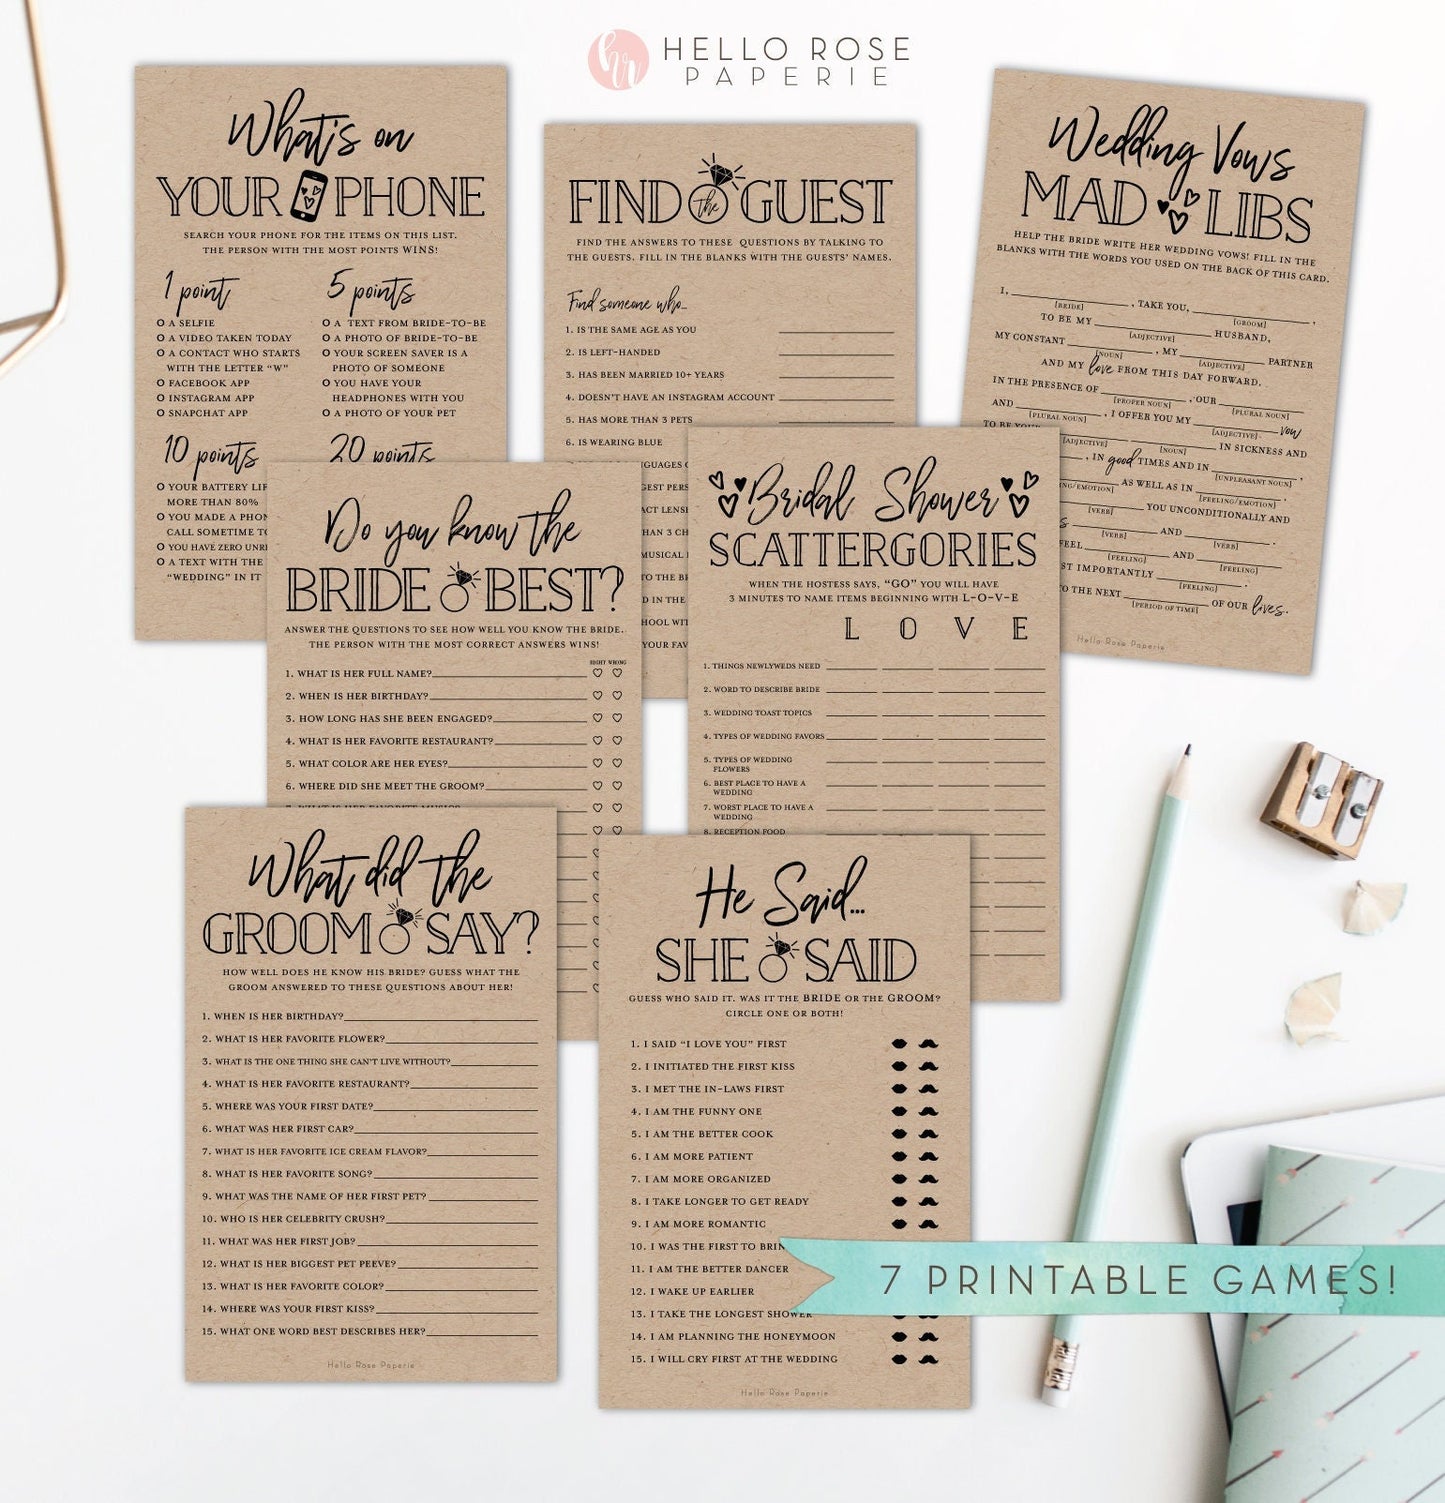 HELLO ROSE
PAPERIE
What's on
YOUR PHONE
SEARCH YOUR PHONE FOR THE ITEMS ON THIS LIST.
THE PERSON WITH THE MOST POINTS WINS!
1 point
O A SELFIE
O A VIDEO TAKEN TODAY
O A CONTACT WHO STARTS
WITH THE LETTER “W”
O FACEBOOK APP
O INSTAGRAM APP
O SNAPCHAT APP
5 points
O A TEXT FROM BRIDE-TO-BE
O A PHOTO OF BRIDE-TO-BE
O YOUR SCREEN SAVER IS A
PHOTO OF SOMEONE
O YOU HAVE YOUR
HEADPHONES WITH YOU
O A PHOTO OF YOUR PET
10 points
O YOUR BATTERY
MORE THAN 80%
O YOU MADE A
CALL SOMETIME
O YOU HAVE ZERO
O A TEXT WITH THE
“WEDDING” IN IT
20 points
FIND the GUEST
FIND THE ANSWERS TO THESE QUESTIONS BY TALKING TO
THE GUESTS. FILL IN THE BLANKS WITH THE GUESTS’ NAMES.
Find someone who...
1. IS THE SAME AGE AS YOU
2. IS LEFT-HANDED
3. HAS BEEN MARRIED 10+ YEARS
4. DOESN’T HAVE AN INSTAGRAM ACCOUNT
5. HAS MORE THAN 3 PETS
6. IS WEARING BLUE
Wedding Vows
MAD LIBS
HELP THE BRIDE WRITE HER WEDDING VOWS! FILL IN THE
BLANKS WITH THE WORDS YOU USED ON THE BACK OF THIS CARD.
I, , TAKE YOU, ,
[BRIDE] [GROOM]
TO BE MY HUSBAND,
[ADJECTIVE]
MY CONSTANT , MY PARTNER
[NOUN] [ADJECTIVE]
AND MY love FROM THIS DAY FORWARD.
IN THE PRESENCE OF , OUR
[PROPER NOUN] [PLURAL NOUN]
AND , I OFFER YOU MY vow
[PLURAL NOUN] [ADJECTIVE]
TO BE YOUR IN SICKNESS AND
[ADJECTIVE] [NOUN]
, IN good TIMES AND IN
[UNPLEASANT NOUN]
AS WELL AS IN
[FEELING/EMOTION]
YOU UNCONDITIONALLY AND
[VERB]
AND
[VERB] [VERB]
FEEL AND
[FEELING] [FEELING]
IMPORTANTLY .
[FEELING]
TO THE NEXT OF OUR lives.
[PERIOD OF TIME]
Hello Rose Paperie
Do you know the
BRIDE BEST?
ANSWER THE QUESTIONS TO SEE HOW WELL YOU KNOW THE BRIDE.
THE PERSON WITH THE MOST CORRECT ANSWERS WINS!
RIGHT WRONG
1. WHAT IS HER FULL NAME?
2. WHEN IS HER BIRTHDAY?
3. HOW LONG HAS SHE BEEN ENGAGED?
4. WHAT IS HER FAVORITE RESTAURANT?
5. WHAT COLOR ARE HER EYES?
6. WHERE DID SHE MEET THE GROOM?
7. WHAT IS HER FAVORITE MUSIC?
Bridal Shower
SCATTERGORIES
WHEN THE HOSTESS SAYS, “GO” YOU WILL HAVE
3 MINUTES TO NAME ITEMS BEGINNING WITH L-O-V-E
L O V E
1. THINGS NEWLYWEDS NEED
2. WORD TO DESCRIBE BRIDE
3. WEDDING TOAST TOPICS
4. TYPES OF WEDDING FAVORS
5. TYPES OF WEDDING
FLOWERS
6. BEST PLACE TO HAVE A
WEDDING
7. WORST PLACE TO HAVE A
WEDDING
8. RECEPTION FOOD
What did the
GROOM SAY?
HOW WELL DOES HE KNOW HIS BRIDE? GUESS WHAT THE
GROOM ANSWERED TO THESE QUESTIONS ABOUT HER!
1. WHEN IS HER BIRTHDAY?
2. WHAT IS HER FAVORITE FLOWER?
3. WHAT IS THE ONE THING SHE CAN’T LIVE WITHOUT?
4. WHAT IS HER FAVORITE RESTAURANT?
5. WHERE WAS YOUR FIRST DATE?
6. WHAT WAS HER FIRST CAR?
7. WHAT IS HER FAVORITE ICE CREAM FLAVOR?
8. WHAT IS HER FAVORITE SONG?
9. WHAT WAS THE NAME OF HER FIRST PET?
10. WHO IS HER CELEBRITY CRUSH?
11. WHAT WAS HER FIRST JOB?
12. WHAT IS HER BIGGEST PET PEEVE?
13. WHAT IS HER FAVORITE COLOR?
14. WHERE WAS YOUR FIRST KISS?
15. WHAT ONE WORD BEST DESCRIBES HER?
Hello Rose Paperie
He Said...
SHE SAID
GUESS WHO SAID IT. WAS IT THE BRIDE OR THE GROOM?
CIRCLE ONE OR BOTH!
1. I SAID “I LOVE YOU” FIRST
2. I INITIATED THE FIRST KISS
3. I MET THE IN-LAWS FIRST
4. I AM THE FUNNY ONE
5. I AM THE BETTER COOK
6. I AM MORE PATIENT
7. I AM MORE ORGANIZED
8. I TAKE LONGER TO GET READY
9. I AM MORE ROMANTIC
10. I WAS THE FIRST TO
11. I AM THE BETTER DANCER
12. I WAKE UP EARLIER
13. I TAKE THE LONGEST SHOWER
14. I AM PLANNING THE HONEYMOON
15. I WILL CRY FIRST AT THE WEDDING
Hello Rose Paperie
7 PRINTABLE GAMES!